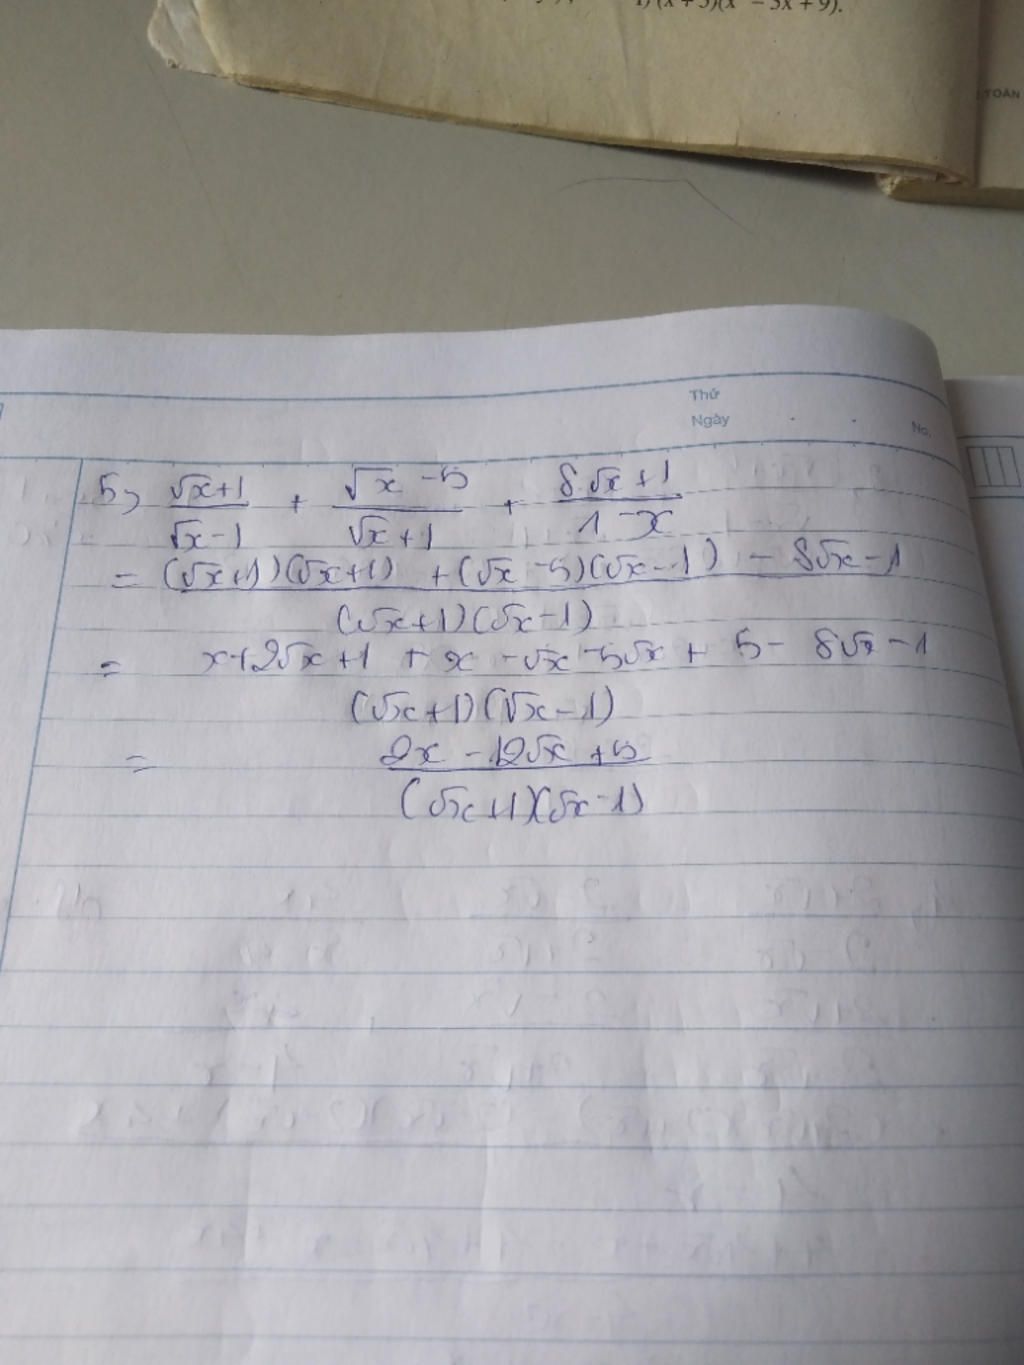 1) (x + 3)(x² − 3x + 9).
TOÁN
Thứ
Ngày
No.
5) (√x+1)/(√x-1) + (√x -5)/(√x+1) + (8√x+1)/(1-x)
= ((√x+1)(√x+1) + (√x -5)(√x-1) - 8√x-1)/((√x+1)(√x-1))
= (x+2√x+1 + x -√x-5√x + 5 - 8√x -1)/((√x+1)(√x-1))
= (2x -12√x +5)/((√x+1)(√x-1))